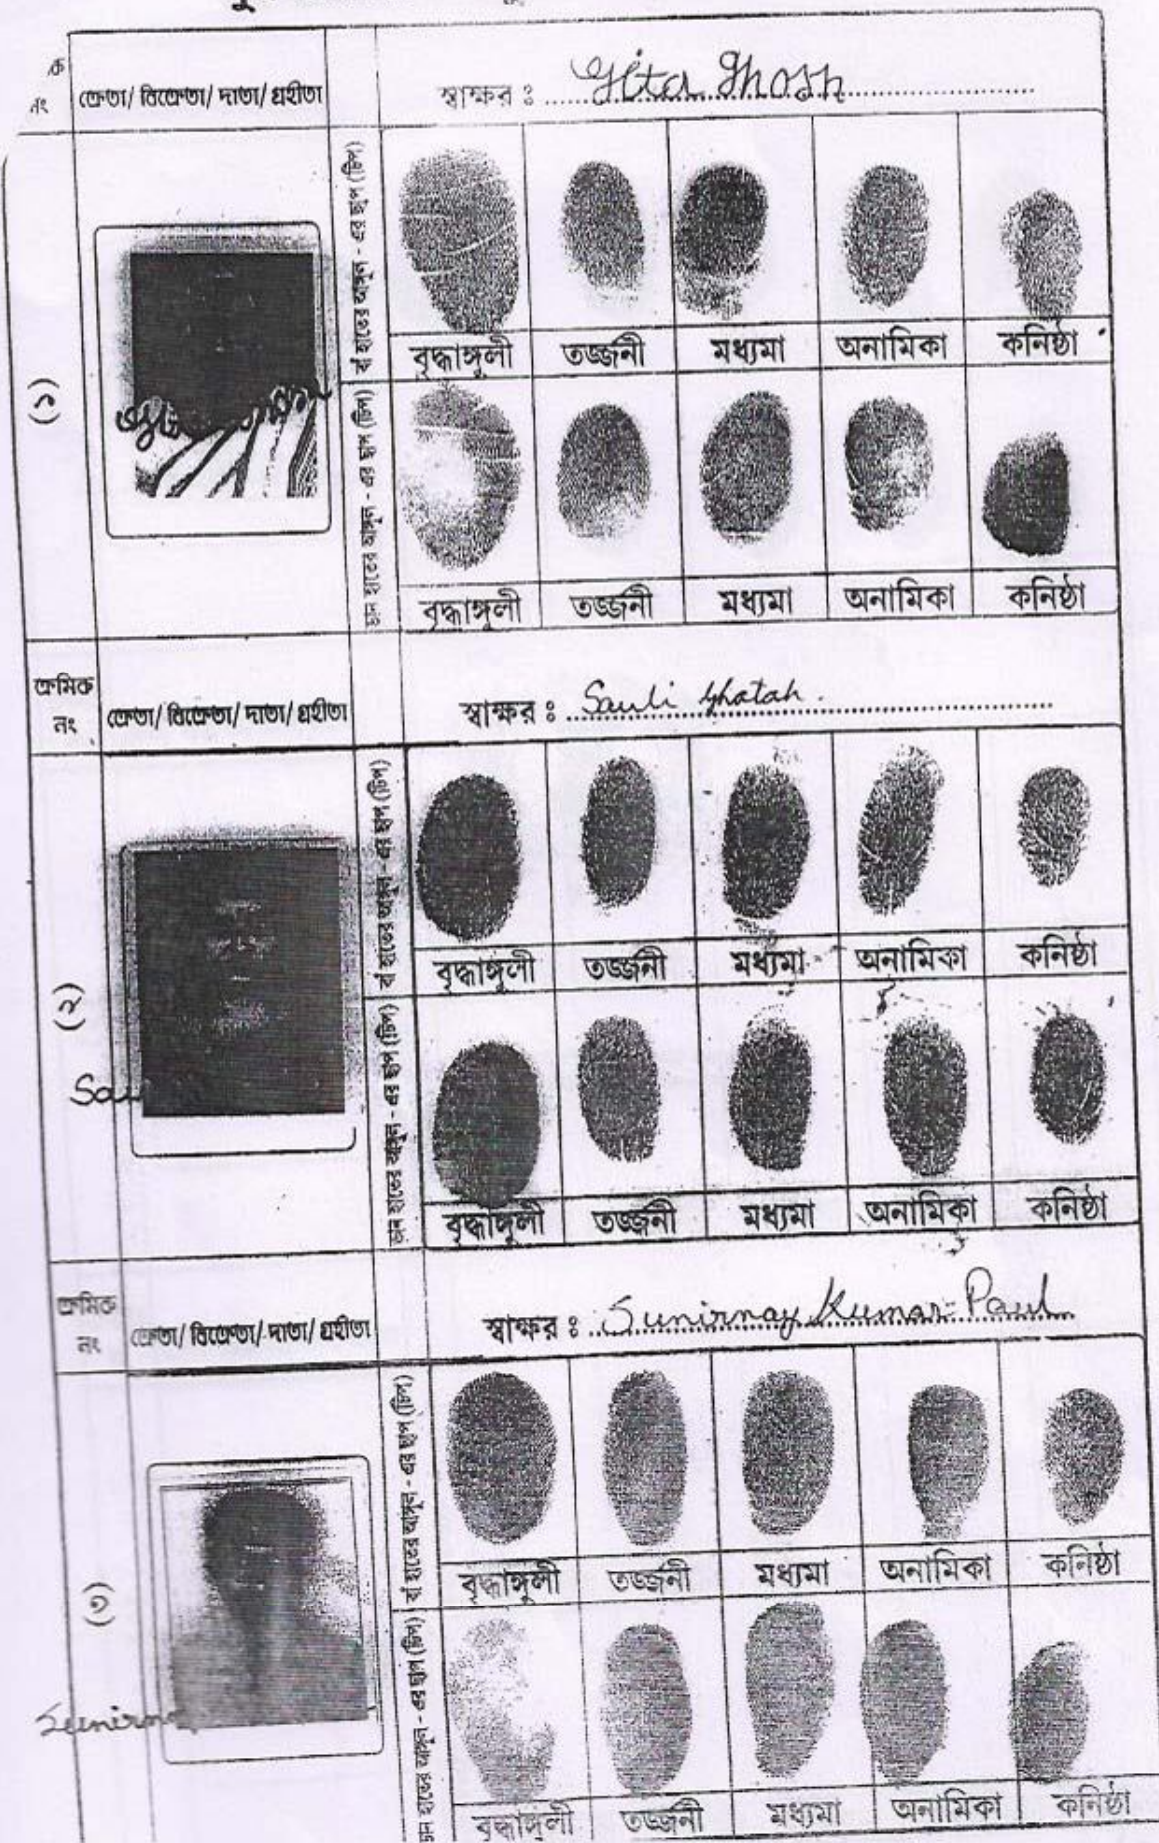 নং ক্রেতা/ বিক্রেতা/ দাতা/ গ্রহীতা স্বাক্ষর : Gita Ghosh
(১)
বাঁ হাতের আঙ্গুল - এর ছাপ (টিপ)
বৃদ্ধাঙ্গুলী তর্জ্জনী মধ্যমা অনামিকা কনিষ্ঠা
ডান হাতের আঙ্গুল - এর ছাপ (টিপ)
বৃদ্ধাঙ্গুলী তর্জ্জনী মধ্যমা অনামিকা কনিষ্ঠা
ক্রমিক
নং ক্রেতা/ বিক্রেতা/ দাতা/ গ্রহীতা স্বাক্ষর : Sauli Ghatak.
(২)
বাঁ হাতের আঙ্গুল - এর ছাপ (টিপ)
বৃদ্ধাঙ্গুলী তর্জ্জনী মধ্যমা অনামিকা কনিষ্ঠা
Sau
ডান হাতের আঙ্গুল - এর ছাপ (টিপ)
বৃদ্ধাঙ্গুলী তর্জ্জনী মধ্যমা অনামিকা কনিষ্ঠা
ক্রমিক
নং ক্রেতা/ বিক্রেতা/ দাতা/ গ্রহীতা স্বাক্ষর : Sunirmay Kumar Paul
(৩)
বাঁ হাতের আঙ্গুল - এর ছাপ (টিপ)
বৃদ্ধাঙ্গুলী তর্জ্জনী মধ্যমা অনামিকা কনিষ্ঠা
Sunirm
ডান হাতের আঙ্গুল - এর ছাপ (টিপ)
বৃদ্ধাঙ্গুলী তর্জ্জনী মধ্যমা অনামিকা কনিষ্ঠা